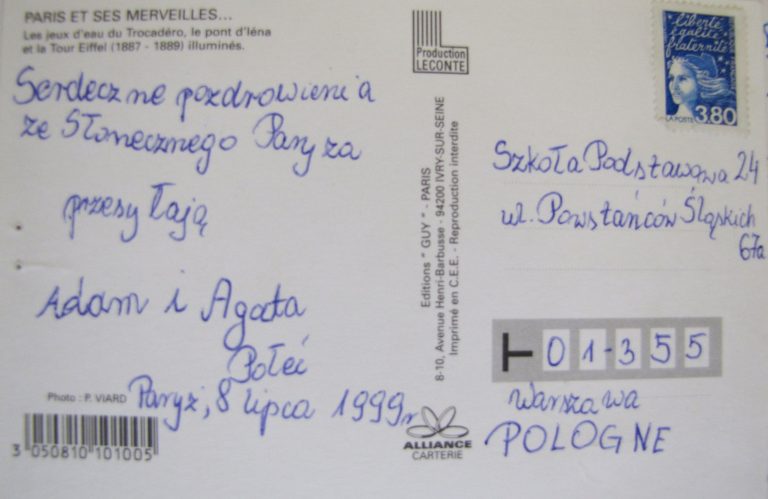 PARIS ET SES MERVEILLES...
Les jeux d'eau du Trocadéro, le pont d'Iéna
et la Tour Eiffel (1887 - 1889) illuminés.
Serdeczne pozdrowienia
ze Słonecznego Paryża
przesyłają
Adam i Agata
Połeć
Paryż, 8 lipca 1999r
Photo : P. VIARD
3 050810 101005
Production
LECONTE
Editions " GUY " - PARIS
8-10, Avenue Henri-Barbusse - 94200 IVRY-SUR-SEINE
Imprimé en C.E.E. - Reproduction interdite
ALLIANCE
CARTERIE
liberté
égalité
fraternité
LA POSTE
3,80
Szkoła Podstawowa 24
ul. Powstańców Śląskich
67a
01-355
Warszawa
POLOGNE